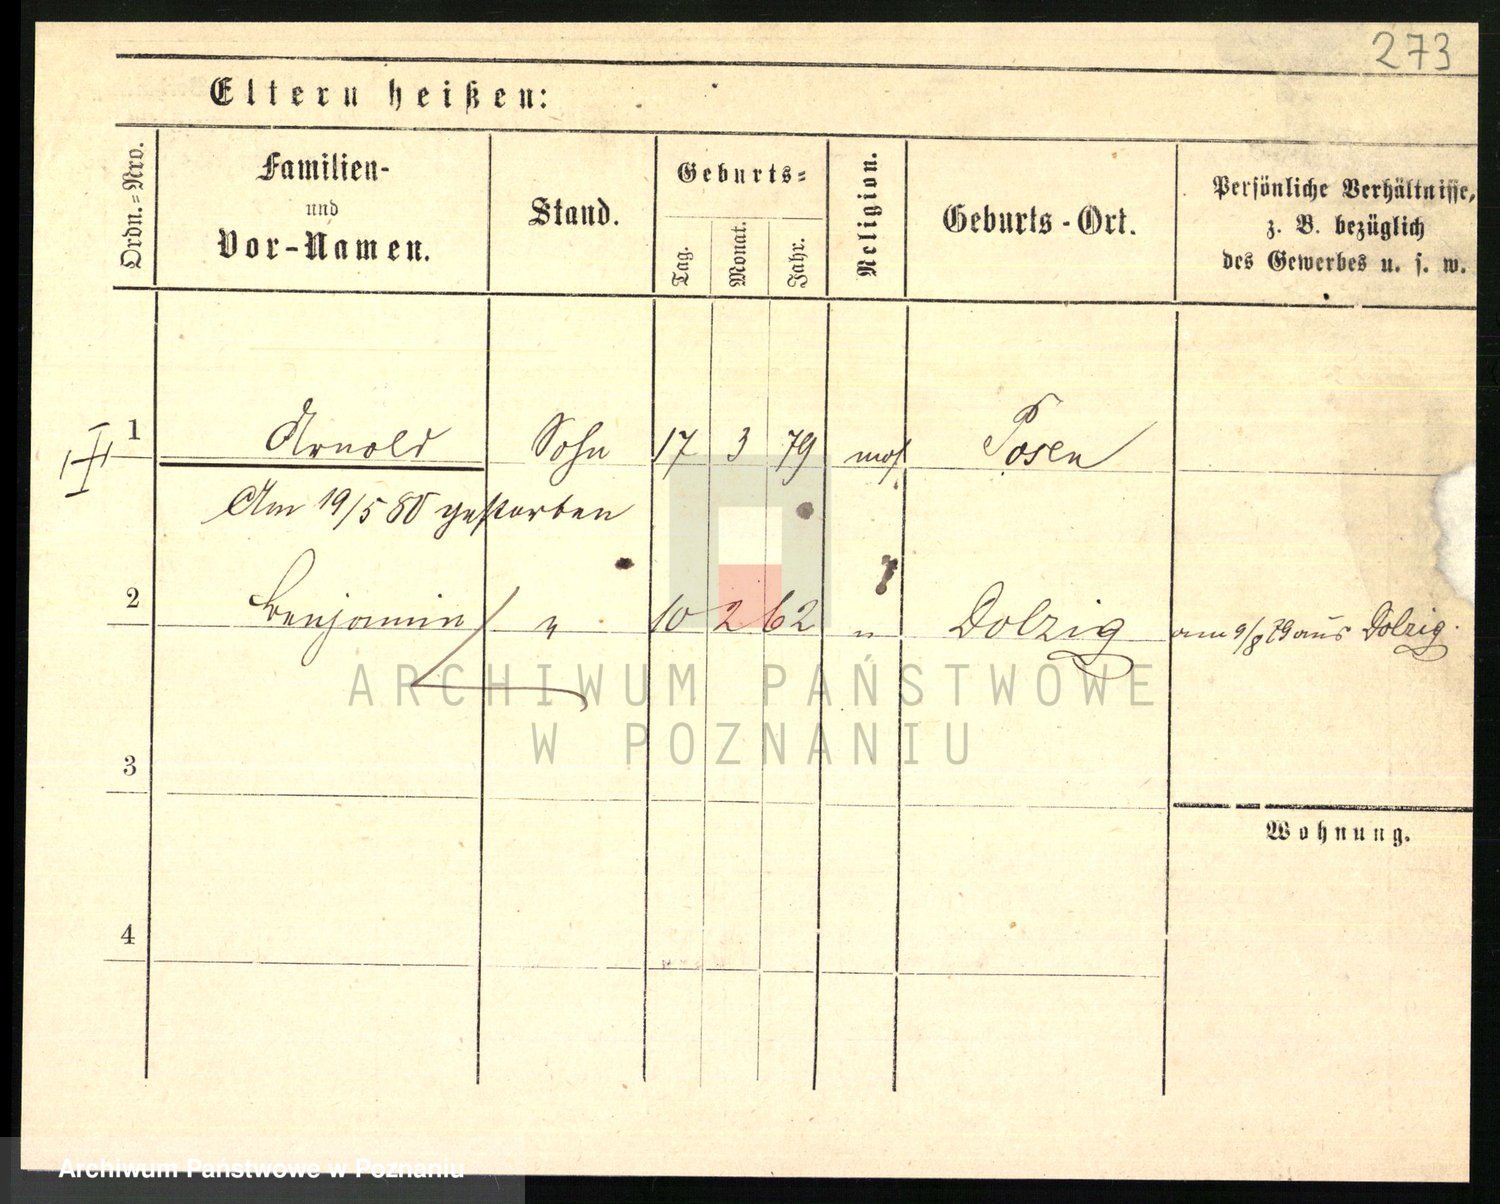 273
Eltern heißen:
Ordn.=Nro.
Familien-
und
Vor-Namen.
Stand.
Geburts=
Tag.
Monat.
Jahr.
Religion.
Geburts-Ort.
Persönliche Verhältnisse,
z. B. bezüglich
des Gewerbes u. s. w.
1 Arnold Sohn 17 3 79 mos Posen
Am 19/5 80 gestorben
2 Benjamin " 10 2 62 " Dolzig am 9/8 79 aus Dolzig.
ARCHIWUM PAŃSTWOWE
W POZNANIU
3
Wohnung.
4
Archiwum Państwowe w Poznaniu